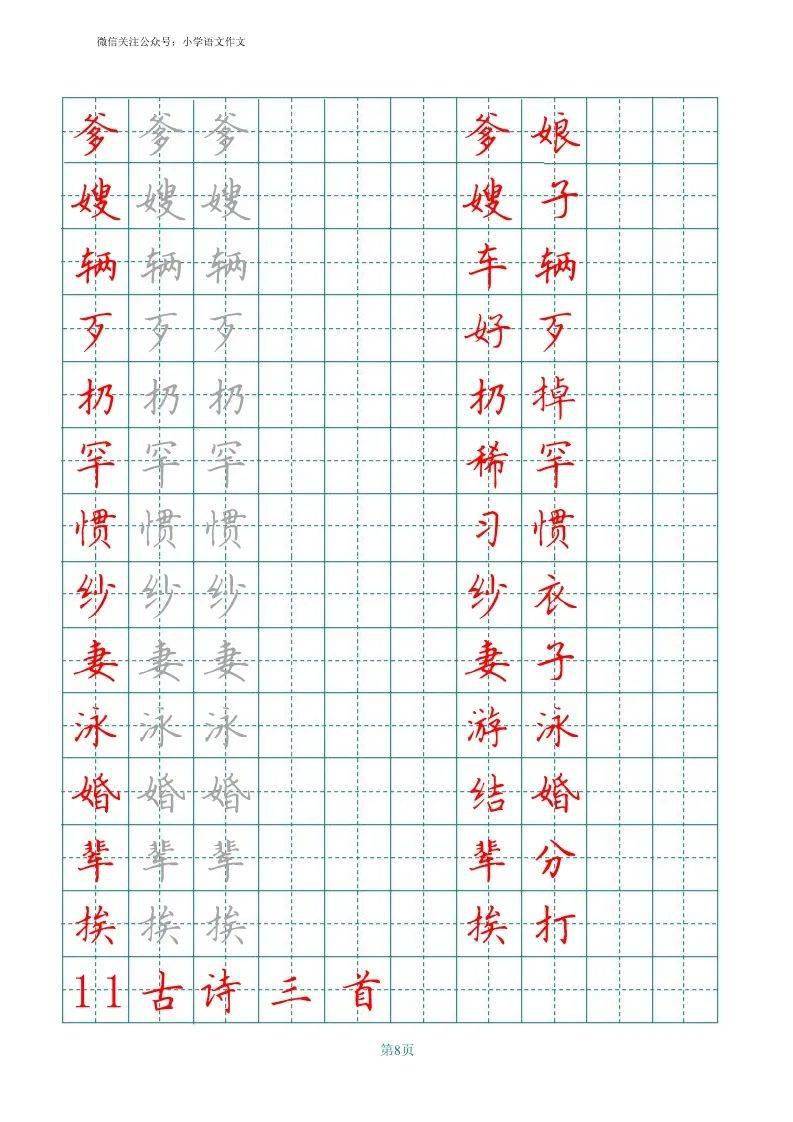 微信关注公众号：小学语文作文
爹爹爹 爹娘
嫂嫂嫂 嫂子
辆辆辆 车辆
歹歹歹 好歹
扔扔扔 扔掉
罕罕罕 稀罕
惯惯惯 习惯
纱纱纱 纱衣
妻妻妻 妻子
泳泳泳 游泳
婚婚婚 结婚
辈辈辈 辈分
挨挨挨 挨打
11古诗三首
第8页